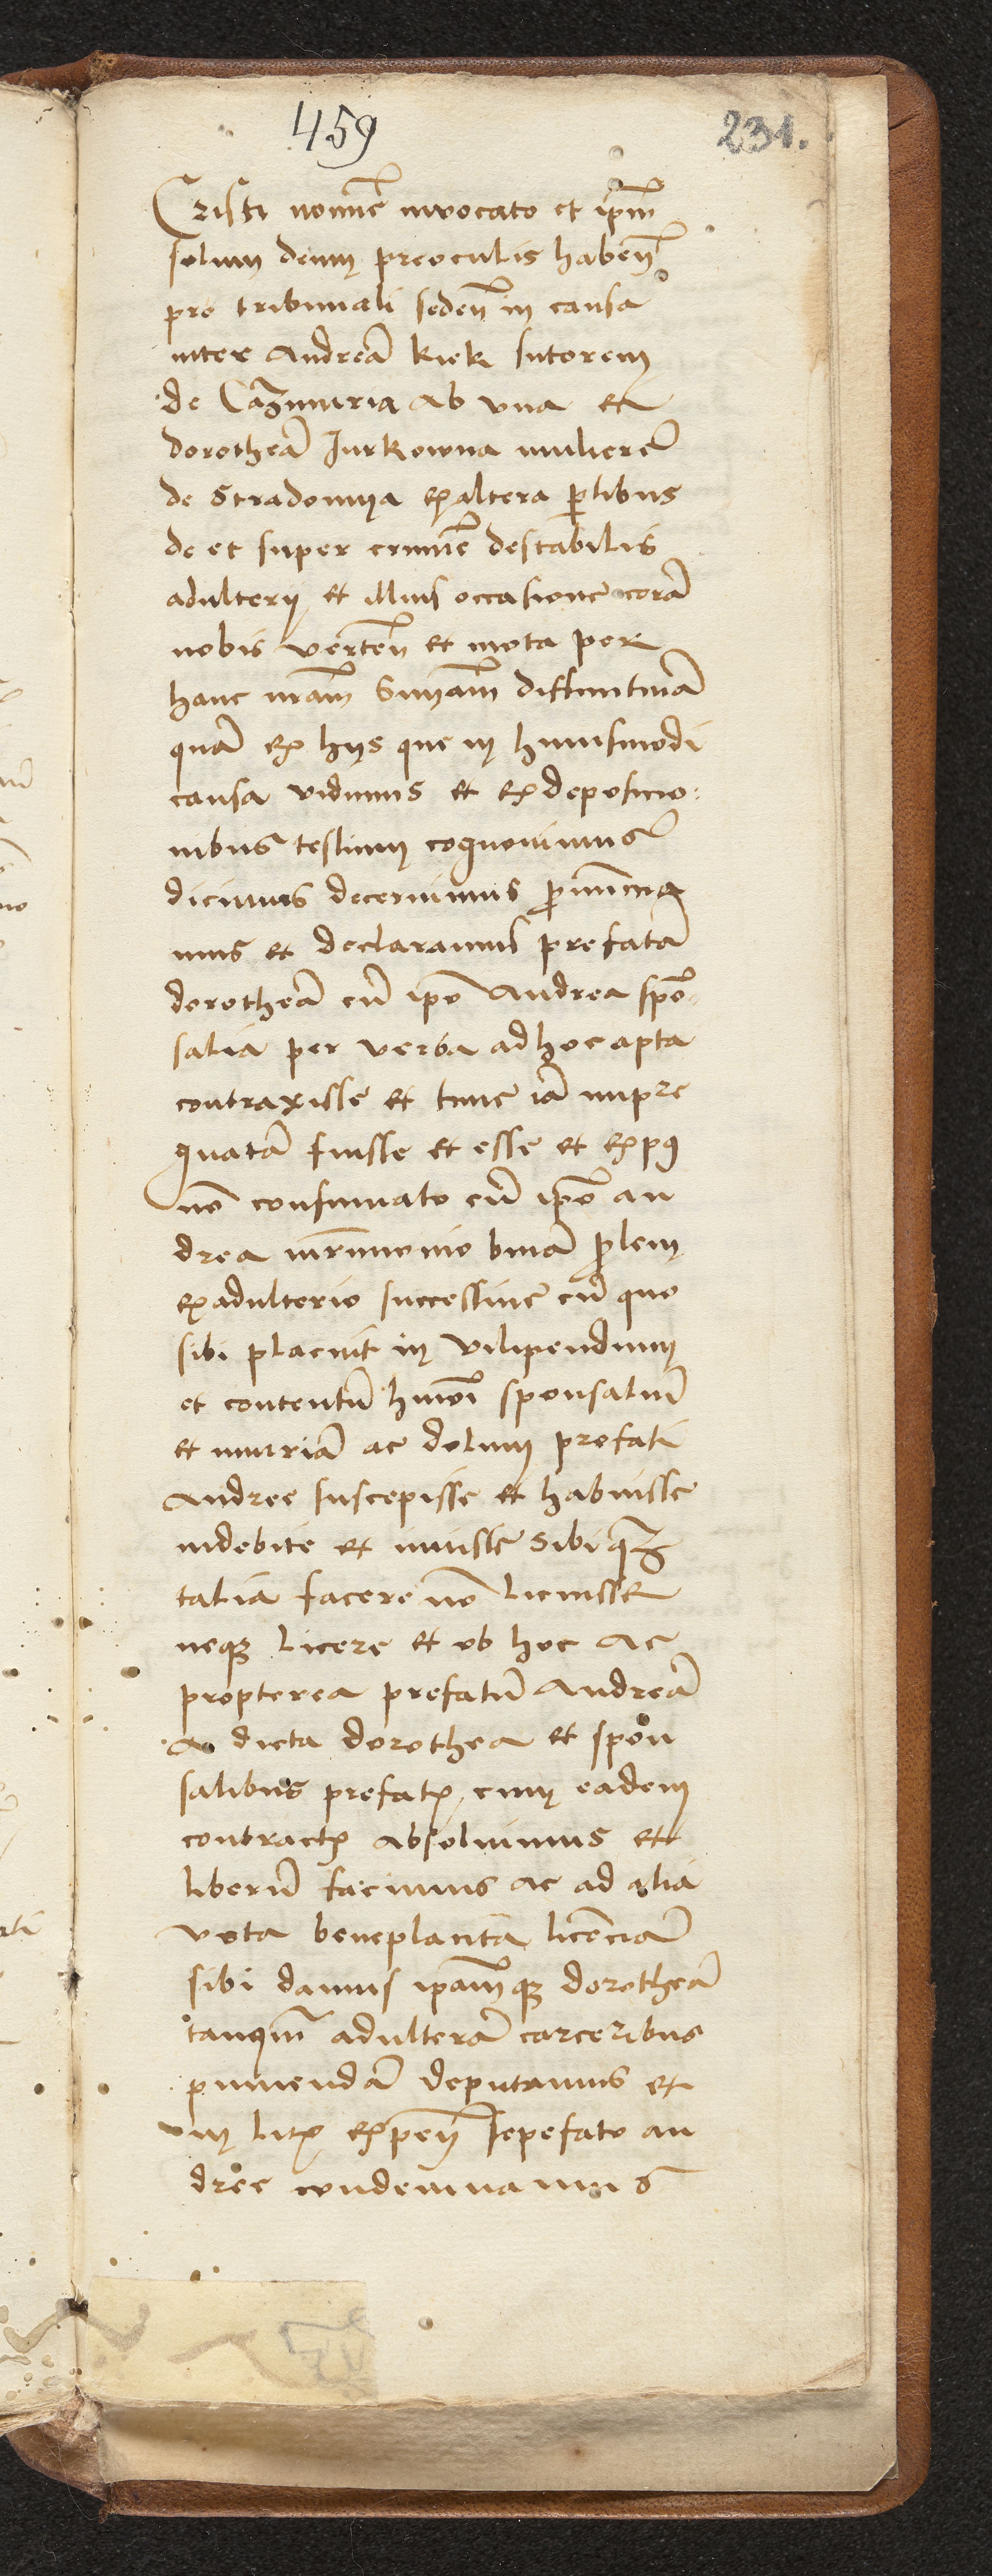 459
231.
Cristi nomīe invocato et ip̄m
solum deum preoculis haben̄
pro tribunali seden̄ in causa
inter Andreā kiek sutorem
de Cazimiria ab vna et
dorotheā Jurkowna mulierē
de Stradomya ex altera ꝑtibus
de et super crimīe destabilis
adulterij et illius occasione corā
nobis verten̄ et mota per
hanc nrām Sn̄iam diffinitiuā
quā ex hijs que in huiusmodi
causa vidimus et ex deposicio:
nibus testium cognouimus
dicimus decernimus ꝓnunccia
mus et declaramus prefatā
dorotheā cū ip̄o Andrea spō
salia per verba ad hoc apta
contraxisse et tunc iā impre
gnatā fuisse et esse et ex pꝰ
nō consumato cū ip̄o an
drea mr̄imonio binā ꝓlem
ex adulterio successiue cū quo
sibi placuit in vilipendium
et contentū hmōi sponsaliū
et iniuriā ac dolum prefati
Andree suscepisse et habuisse
indebite et iniuste sibiqꝫ
talia facere nō licuisse
neqꝫ licere et ob hoc ac
propterea prefatū Andreā
a dicta dorothea et spon
salibus prefatꝭ cum eadem
contractꝭ absoluimus et
liberū facimus ac ad alia
vota beneplacita licēciā
sibi damus ipamqꝫ dorotheā
tanqm̄ adulterā carceribus
puniendā deputamus et
in litꝭ expen̄ sepefato an
dree condemnamus